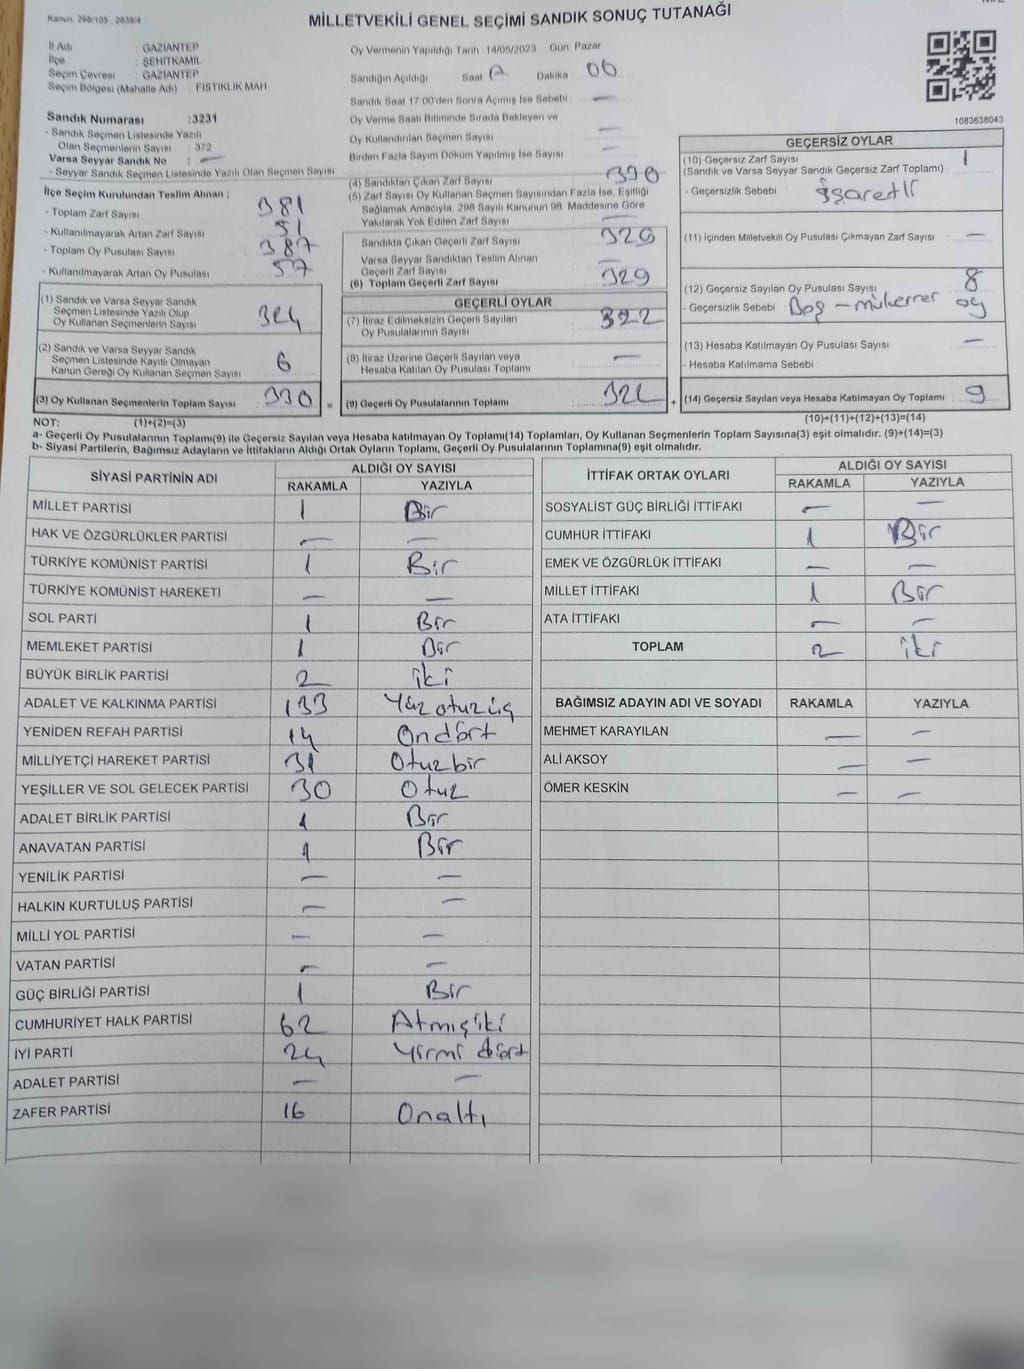 Kanun. 298/105 , 2839/4
MİLLETVEKİLİ GENEL SEÇİMİ SANDIK SONUÇ TUTANAĞI
İl Adı : GAZİANTEP
İlçe : ŞEHİTKAMİL
Seçim Çevresi : GAZİANTEP
Seçim Bölgesi (Mahalle Adı) : FISTIKLIK MAH
Sandık Numarası :3231
- Sandık Seçmen Listesinde Yazılı
Olan Seçmenlerin Sayısı : 372
Varsa Seyyar Sandık No : —
- Seyyar Sandık Seçmen Listesinde Yazılı Olan Seçmen Sayısı:
Oy Vermenin Yapıldığı Tarih :14/05/2023 Gün: Pazar
Sandığın Açıldığı Saat Dakika 00
Sandık Saat 17:00'den Sonra Açılmış İse Sebebi : —
Oy Verme Saati Bitiminde Sırada Bekleyen ve
Oy Kullandırılan Seçmen Sayısı : —
Birden Fazla Sayım Döküm Yapılmış İse Sayısı : —
1083638043
İlçe Seçim Kurulundan Teslim Alınan ;
- Toplam Zarf Sayısı : 381
- Kullanılmayarak Artan Zarf Sayısı : 51
- Toplam Oy Pusulası Sayısı : 387
- Kullanılmayarak Artan Oy Pusulası : 57
(1) Sandık ve Varsa Seyyar Sandık
Seçmen Listesinde Yazılı Olup
Oy Kullanan Seçmenlerin Sayısı : 324
(2) Sandık ve Varsa Seyyar Sandık
Seçmen Listesinde Kayıtlı Olmayan
Kanun Gereği Oy Kullanan Seçmen Sayısı : 6
(3) Oy Kullanan Seçmenlerin Toplam Sayısı : 330 =
(4) Sandıktan Çıkan Zarf Sayısı : 330
(5) Zarf Sayısı Oy Kullanan Seçmen Sayısından Fazla İse, Eşitliği
Sağlamak Amacıyla, 298 Sayılı Kanunun 98. Maddesine Göre
Yakılarak Yok Edilen Zarf Sayısı : —
Sandıkta Çıkan Geçerli Zarf Sayısı : 329
Varsa Seyyar Sandıktan Teslim Alınan
Geçerli Zarf Sayısı : —
(6) Toplam Geçerli Zarf Sayısı : 329
GEÇERLİ OYLAR
(7) İtiraz Edilmeksizin Geçerli Sayılan
Oy Pusulalarının Sayısı : 322
(8) İtiraz Üzerine Geçerli Sayılan veya
Hesaba Katılan Oy Pusulası Toplamı : —
(9) Geçerli Oy Pusulalarının Toplamı : 321 +
GEÇERSİZ OYLAR
(10) Geçersiz Zarf Sayısı : 1
(Sandık ve Varsa Seyyar Sandık Geçersiz Zarf Toplamı)
- Geçersizlik Sebebi : işaretli
(11) İçinden Milletvekili Oy Pusulası Çıkmayan Zarf Sayısı : —
(12) Geçersiz Sayılan Oy Pusulası Sayısı : 8
- Geçersizlik Sebebi : Boş – mükerrer oy
(13) Hesaba Katılmayan Oy Pusulası Sayısı : —
- Hesaba Katılmama Sebebi :
(14) Geçersiz Sayılan veya Hesaba Katılmayan Oy Toplamı : 9
NOT: (1)+(2)=(3) (10)+(11)+(12)+(13)=(14)
a- Geçerli Oy Pusulalarının Toplamı(9) ile Geçersiz Sayılan veya Hesaba katılmayan Oy Toplamı(14) Toplamları, Oy Kullanan Seçmenlerin Toplam Sayısına(3) eşit olmalıdır. (9)+(14)=(3)
b- Siyasi Partilerin, Bağımsız Adayların ve İttifakların Aldığı Ortak Oyların Toplamı, Geçerli Oy Pusulalarının Toplamına(9) eşit olmalıdır.
SİYASİ PARTİNİN ADI ALDIĞI OY SAYISI
RAKAMLA YAZIYLA
MİLLET PARTİSİ 1 Bir
HAK VE ÖZGÜRLÜKLER PARTİSİ — —
TÜRKİYE KOMÜNİST PARTİSİ 1 Bir
TÜRKİYE KOMÜNİST HAREKETİ — —
SOL PARTİ 1 Bir
MEMLEKET PARTİSİ 1 Bir
BÜYÜK BİRLİK PARTİSİ 2 iki
ADALET VE KALKINMA PARTİSİ 133 Yüzotuzüç
YENİDEN REFAH PARTİSİ 14 Ondört
MİLLİYETÇİ HAREKET PARTİSİ 31 Otuzbir
YEŞİLLER VE SOL GELECEK PARTİSİ 30 Otuz
ADALET BİRLİK PARTİSİ 1 Bir
ANAVATAN PARTİSİ 1 Bir
YENİLİK PARTİSİ — —
HALKIN KURTULUŞ PARTİSİ — —
MİLLİ YOL PARTİSİ — —
VATAN PARTİSİ — —
GÜÇ BİRLİĞİ PARTİSİ 1 Bir
CUMHURİYET HALK PARTİSİ 62 Atmışiki
İYİ PARTİ 24 Yirmi dört
ADALET PARTİSİ — —
ZAFER PARTİSİ 16 Onaltı
İTTİFAK ORTAK OYLARI ALDIĞI OY SAYISI
RAKAMLA YAZIYLA
SOSYALİST GÜÇ BİRLİĞİ İTTİFAKI — —
CUMHUR İTTİFAKI 1 Bir
EMEK VE ÖZGÜRLÜK İTTİFAKI — —
MİLLET İTTİFAKI 1 Bir
ATA İTTİFAKI — —
TOPLAM 2 iki
BAĞIMSIZ ADAYIN ADI VE SOYADI RAKAMLA YAZIYLA
MEHMET KARAYILAN — —
ALİ AKSOY — —
ÖMER KESKİN — —